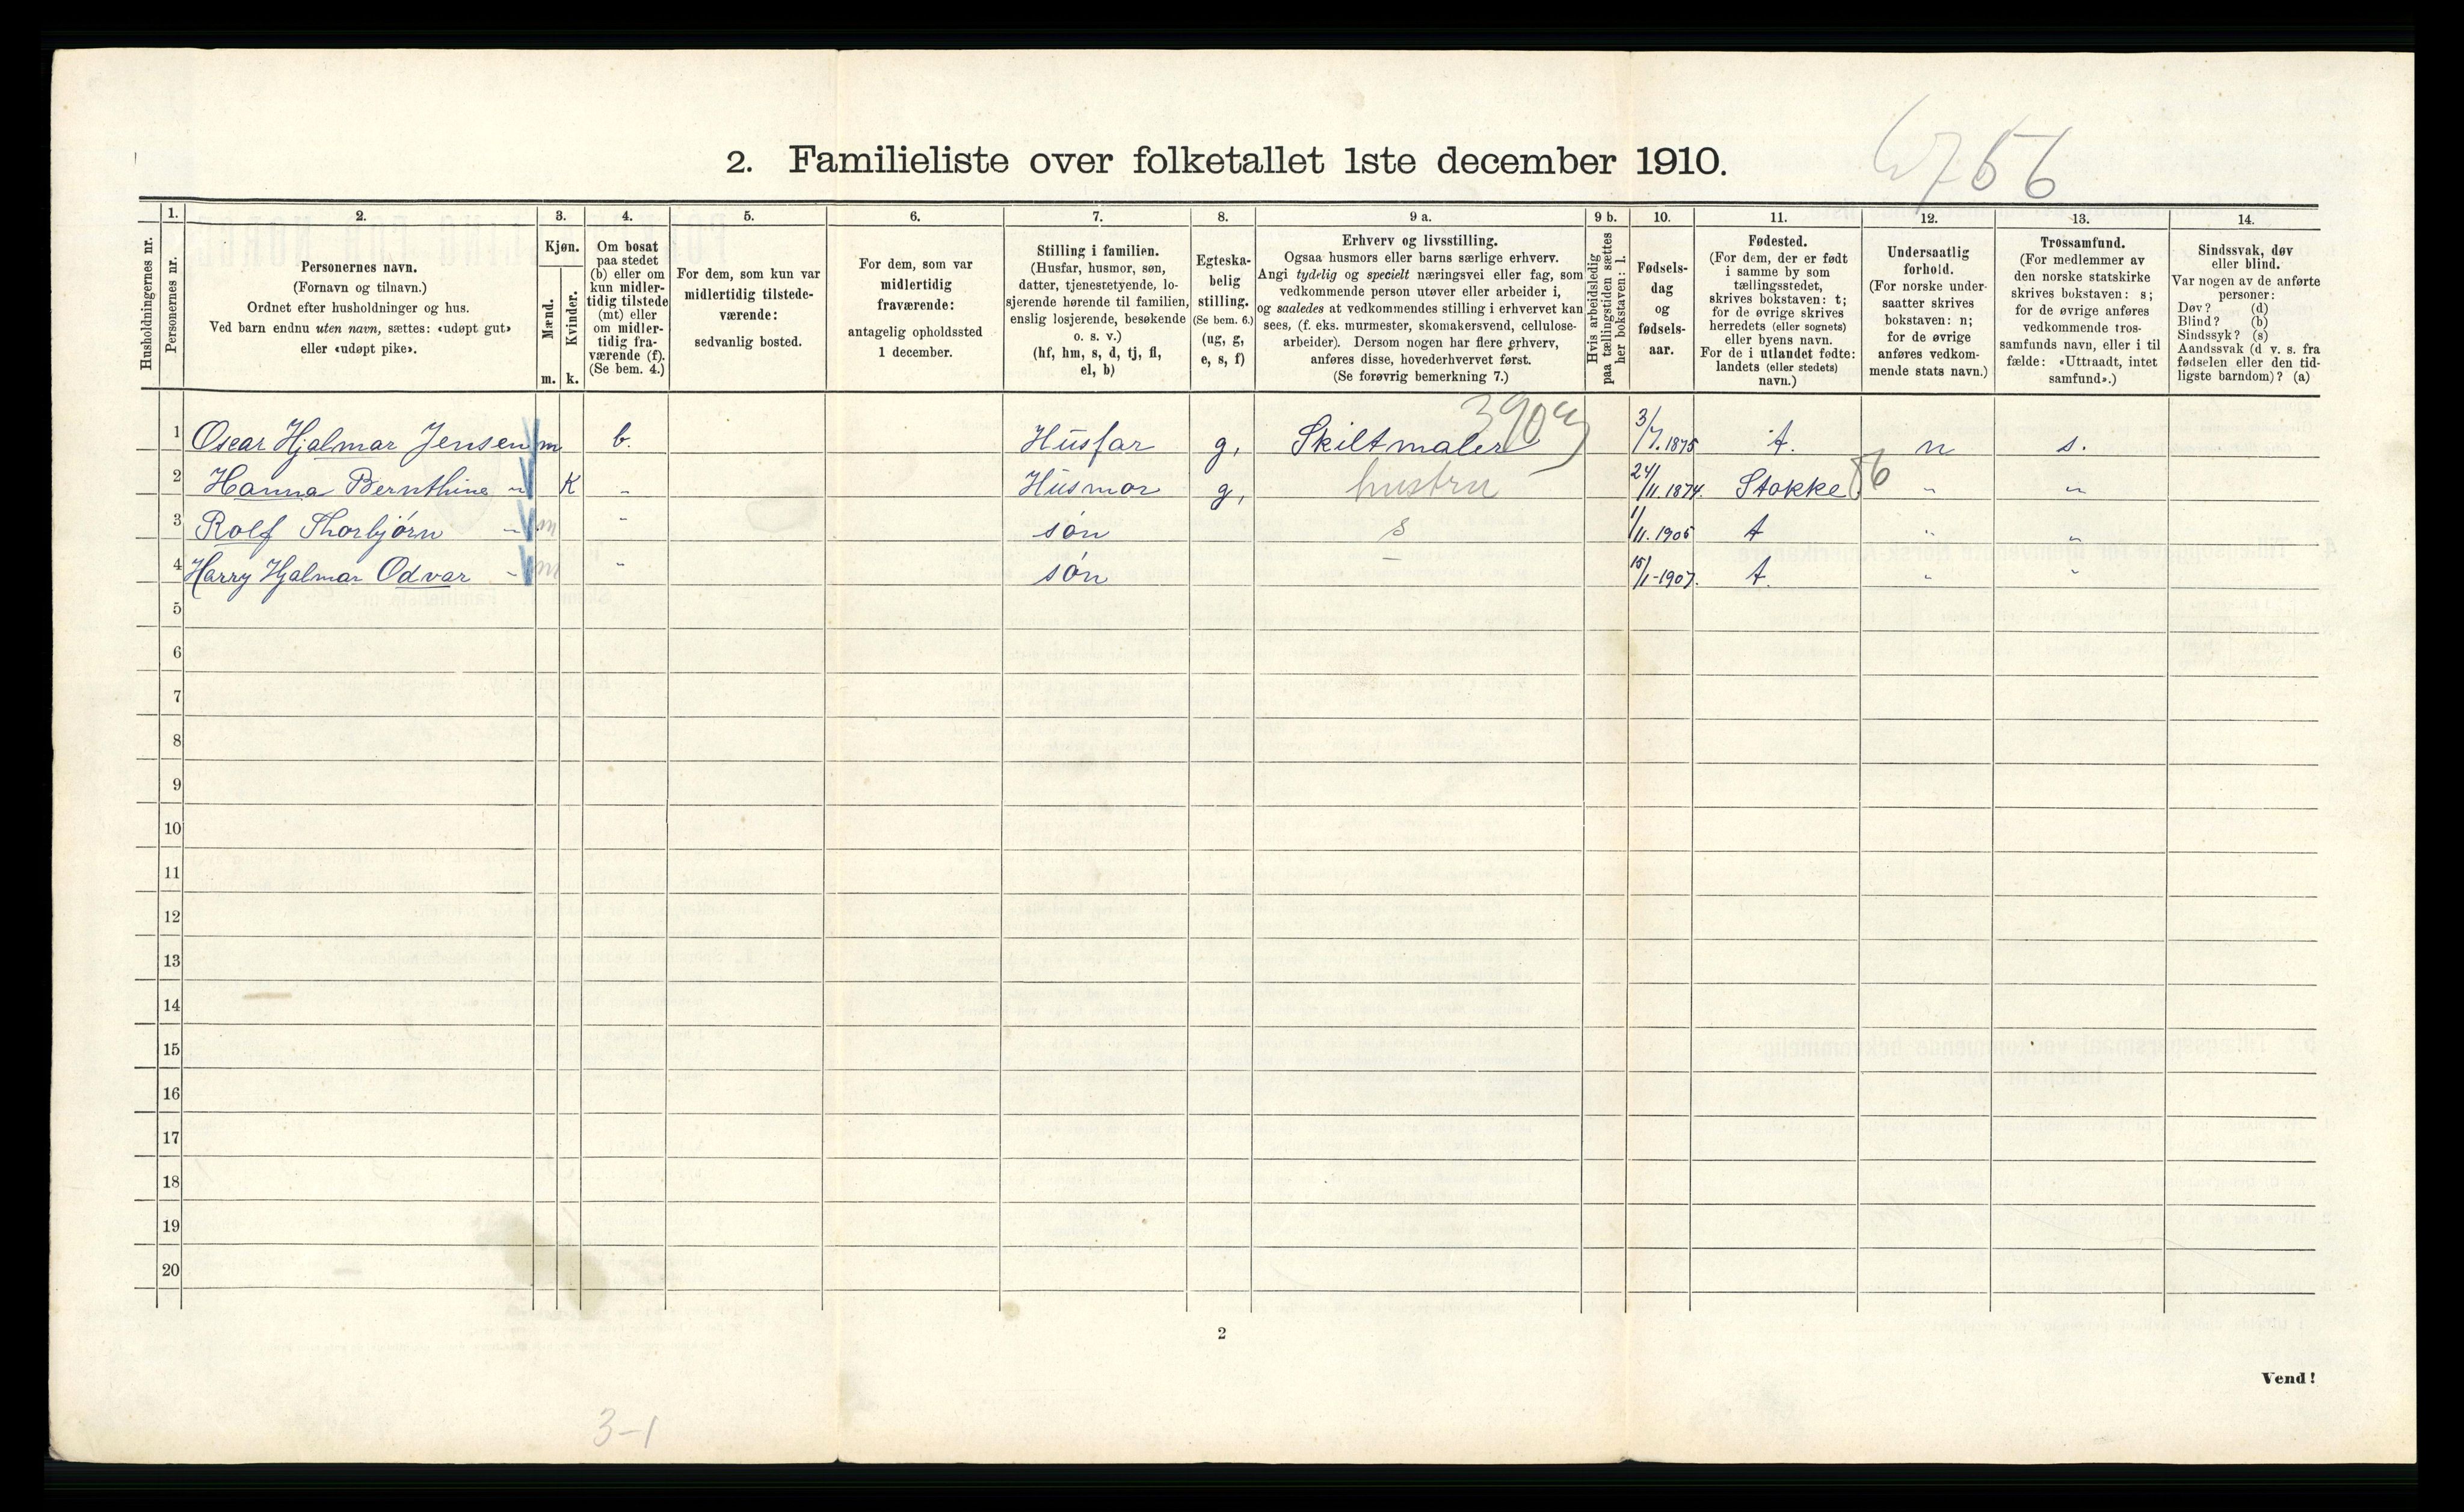 6756
2. Familieliste over folketallet 1ste december 1910.
Husholdningernes nr.
1.
Personernes nr.
2.
Personernes navn.
(Fornavn og tilnavn.)
Ordnet efter husholdninger og hus.
Ved barn endnu uten navn, sættes: «udøpt gut»
eller «udøpt pike».
3.
Kjøn.
Mænd.
m.
Kvinder.
k.
4.
Om bosat
paa stedet
(b) eller om
kun midler-
tidig tilstede
(mt) eller
om midler-
tidig fra-
værende (f).
(Se bem. 4.)
5.
For dem, som kun var
midlertidig tilstede-
værende:
sedvanlig bosted.
6.
For dem, som var
midlertidig
fraværende:
antagelig opholdssted
1 december.
7.
Stilling i familien.
(Husfar, husmor, søn,
datter, tjenestetyende, lo-
sjerende hørende til familien,
enslig losjerende, besøkende
o. s. v.)
(hf, hm, s, d, tj, fl,
el, b)
8.
Egteska-
belig
stilling.
(Se bem. 6.)
(ug, g,
e, s, f)
9 a.
Erhverv og livsstilling.
Ogsaa husmors eller barns særlige erhverv.
Angi tydelig og specielt næringsvei eller fag, som
vedkommende person utøver eller arbeider i,
og saaledes at vedkommendes stilling i erhvervet kan
sees, (f. eks. murmester, skomakersvend, cellulose-
arbeider). Dersom nogen har flere erhverv,
anføres disse, hovederhvervet først.
(Se forøvrig bemerkning 7.)
9 b.
Hvis arbeidsledig
paa tællingstiden sættes
her bokstaven: l.
10.
Fødsels-
dag
og
fødsels-
aar.
11.
Fødested.
(For dem, der er født
i samme by som
tællingsstedet,
skrives bokstaven: t;
for de øvrige skrives
herredets (eller sognets)
eller byens navn.
For de i utlandet fødte:
landets (eller stedets)
navn.)
12.
Undersaatlig
forhold.
(For norske under-
saatter skrives
bokstaven: n;
for de øvrige
anføres vedkom-
mende stats navn.)
13.
Trossamfund.
(For medlemmer av
den norske statskirke
skrives bokstaven: s;
for de øvrige anføres
vedkommende tros-
samfunds navn, eller i til
fælde: «Uttraadt, intet
samfund».)
14.
Sindssvak, døv
eller blind.
Var nogen av de anførte
personer:
Døv? (d)
Blind? (b)
Sindssyk? (s)
Aandssvak (d v. s. fra
fødselen eller den tid-
ligste barndom)? (a)
1 Oscar Hjalmar Jensen m b. Husfar g, Skiltmaler 3/7.1875 t. n s.
2 Hanna Bernthine " K " Husmor g, hustru 24/11.1874. Stokke 86 " "
3 Rolf Thorbjørn " m " søn s 1/11.1905 t " "
4 Harry Hjalmar Odvar " m " søn 15/1-1907. t. " "
5
6
7
8
9
10
11
12
13
14
15
16
17
18
19
20
2
Vend!
3-1